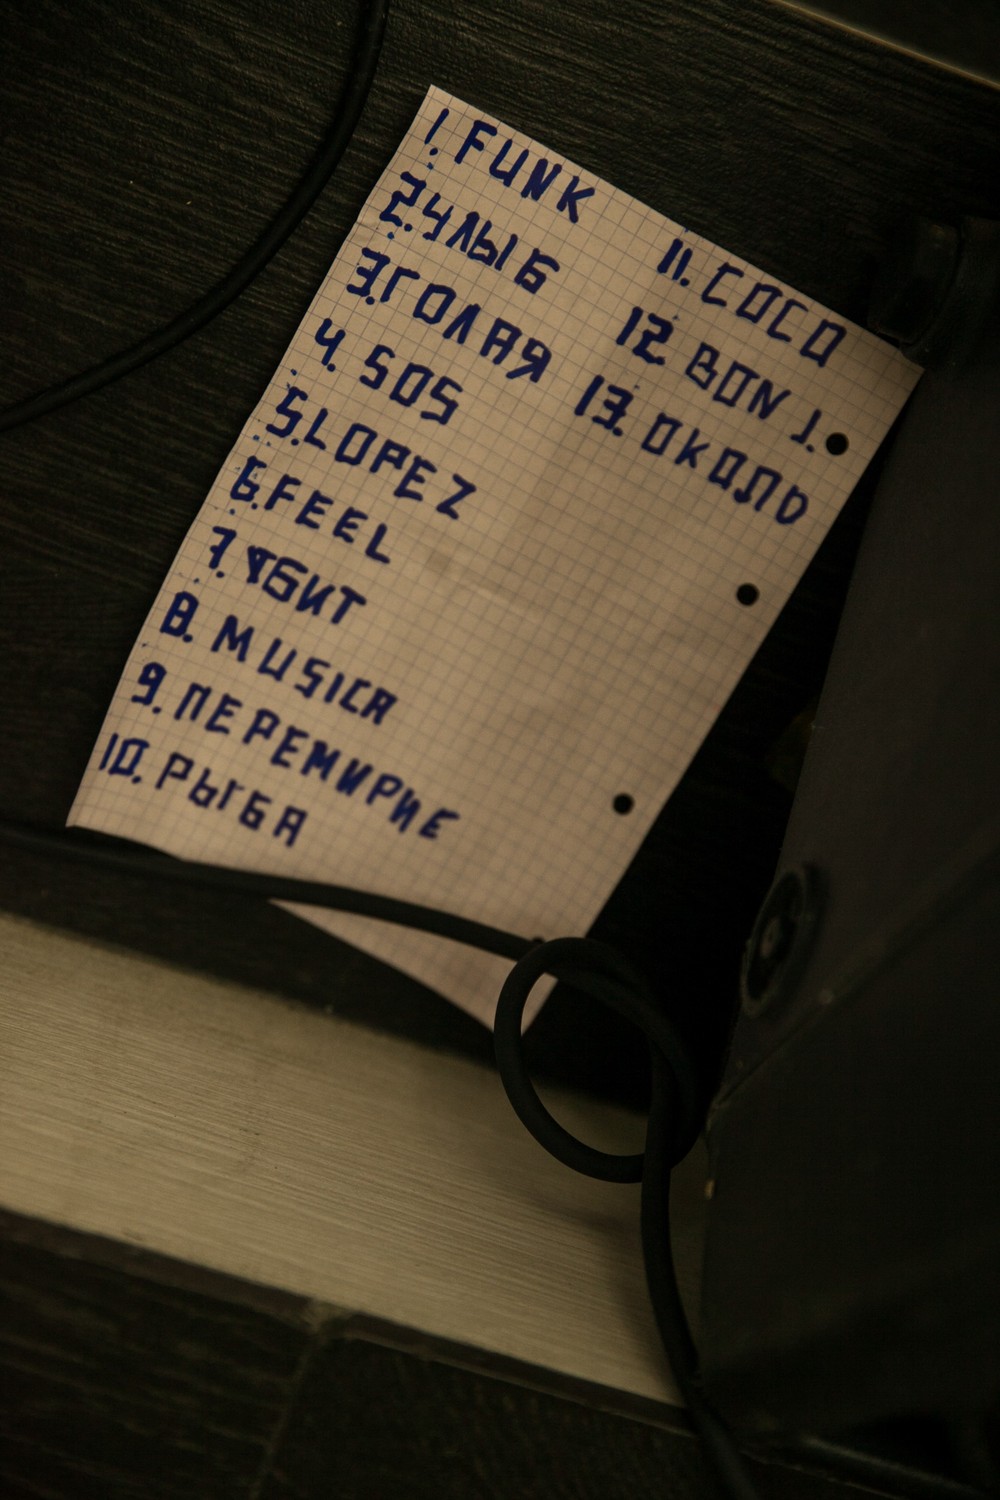 1. FUNK
2. УЛЫБ
3. ГОЛАЯ
4. SOS
5. LOPEZ
6. FEEL
7. УБИТ
8. MUSICA
9. ПЕРЕМИРИЕ
10. РЫБА
11. COCO
12. BON J.
13. ОКОЛО